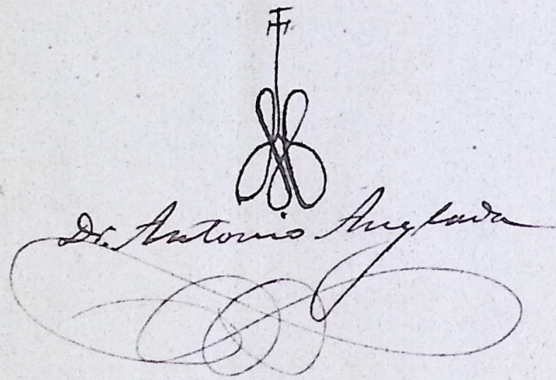 Dr. Antonio Anglada